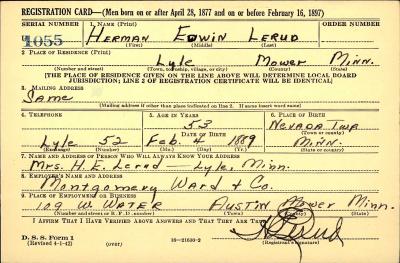 REGISTRATION CARD—(Men born on or after April 28, 1877 and on or before February 16, 1897)
SERIAL NUMBER 1. NAME (Print) ORDER NUMBER
1055 HERMAN EDWIN LERUD
(First) (Middle) (Last)
2. PLACE OF RESIDENCE (Print)
Lyle Mower Minn.
(Number and street) (Town, township, village, or city) (County) (State)
[THE PLACE OF RESIDENCE GIVEN ON THE LINE ABOVE WILL DETERMINE LOCAL BOARD
JURISDICTION; LINE 2 OF REGISTRATION CERTIFICATE WILL BE IDENTICAL]
3. MAILING ADDRESS
Same
[Mailing address if other than place indicated on line 2. If same insert word same]
4. TELEPHONE 5. AGE IN YEARS 6. PLACE OF BIRTH
53 NEVADA Twp
DATE OF BIRTH (Town or county)
Lyle 52 Feb. 4 1889 MINN.
(Exchange) (Number) (Mo.) (Day) (Yr.) (State or country)
7. NAME AND ADDRESS OF PERSON WHO WILL ALWAYS KNOW YOUR ADDRESS
Mrs. H. E. Lerud Lyle, Minn.
8. EMPLOYER'S NAME AND ADDRESS
Montgomery Ward & Co.
9. PLACE OF EMPLOYMENT OR BUSINESS
109 W. WATER AUSTIN Mower Minn.
(Number and street or R. F. D. number) (Town) (County) (State)
I AFFIRM THAT I HAVE VERIFIED ABOVE ANSWERS AND THAT THEY ARE TRUE.
D. S. S. Form 1
(Revised 4-1-42) (over) 16—21630-2 (Registrant's signature)